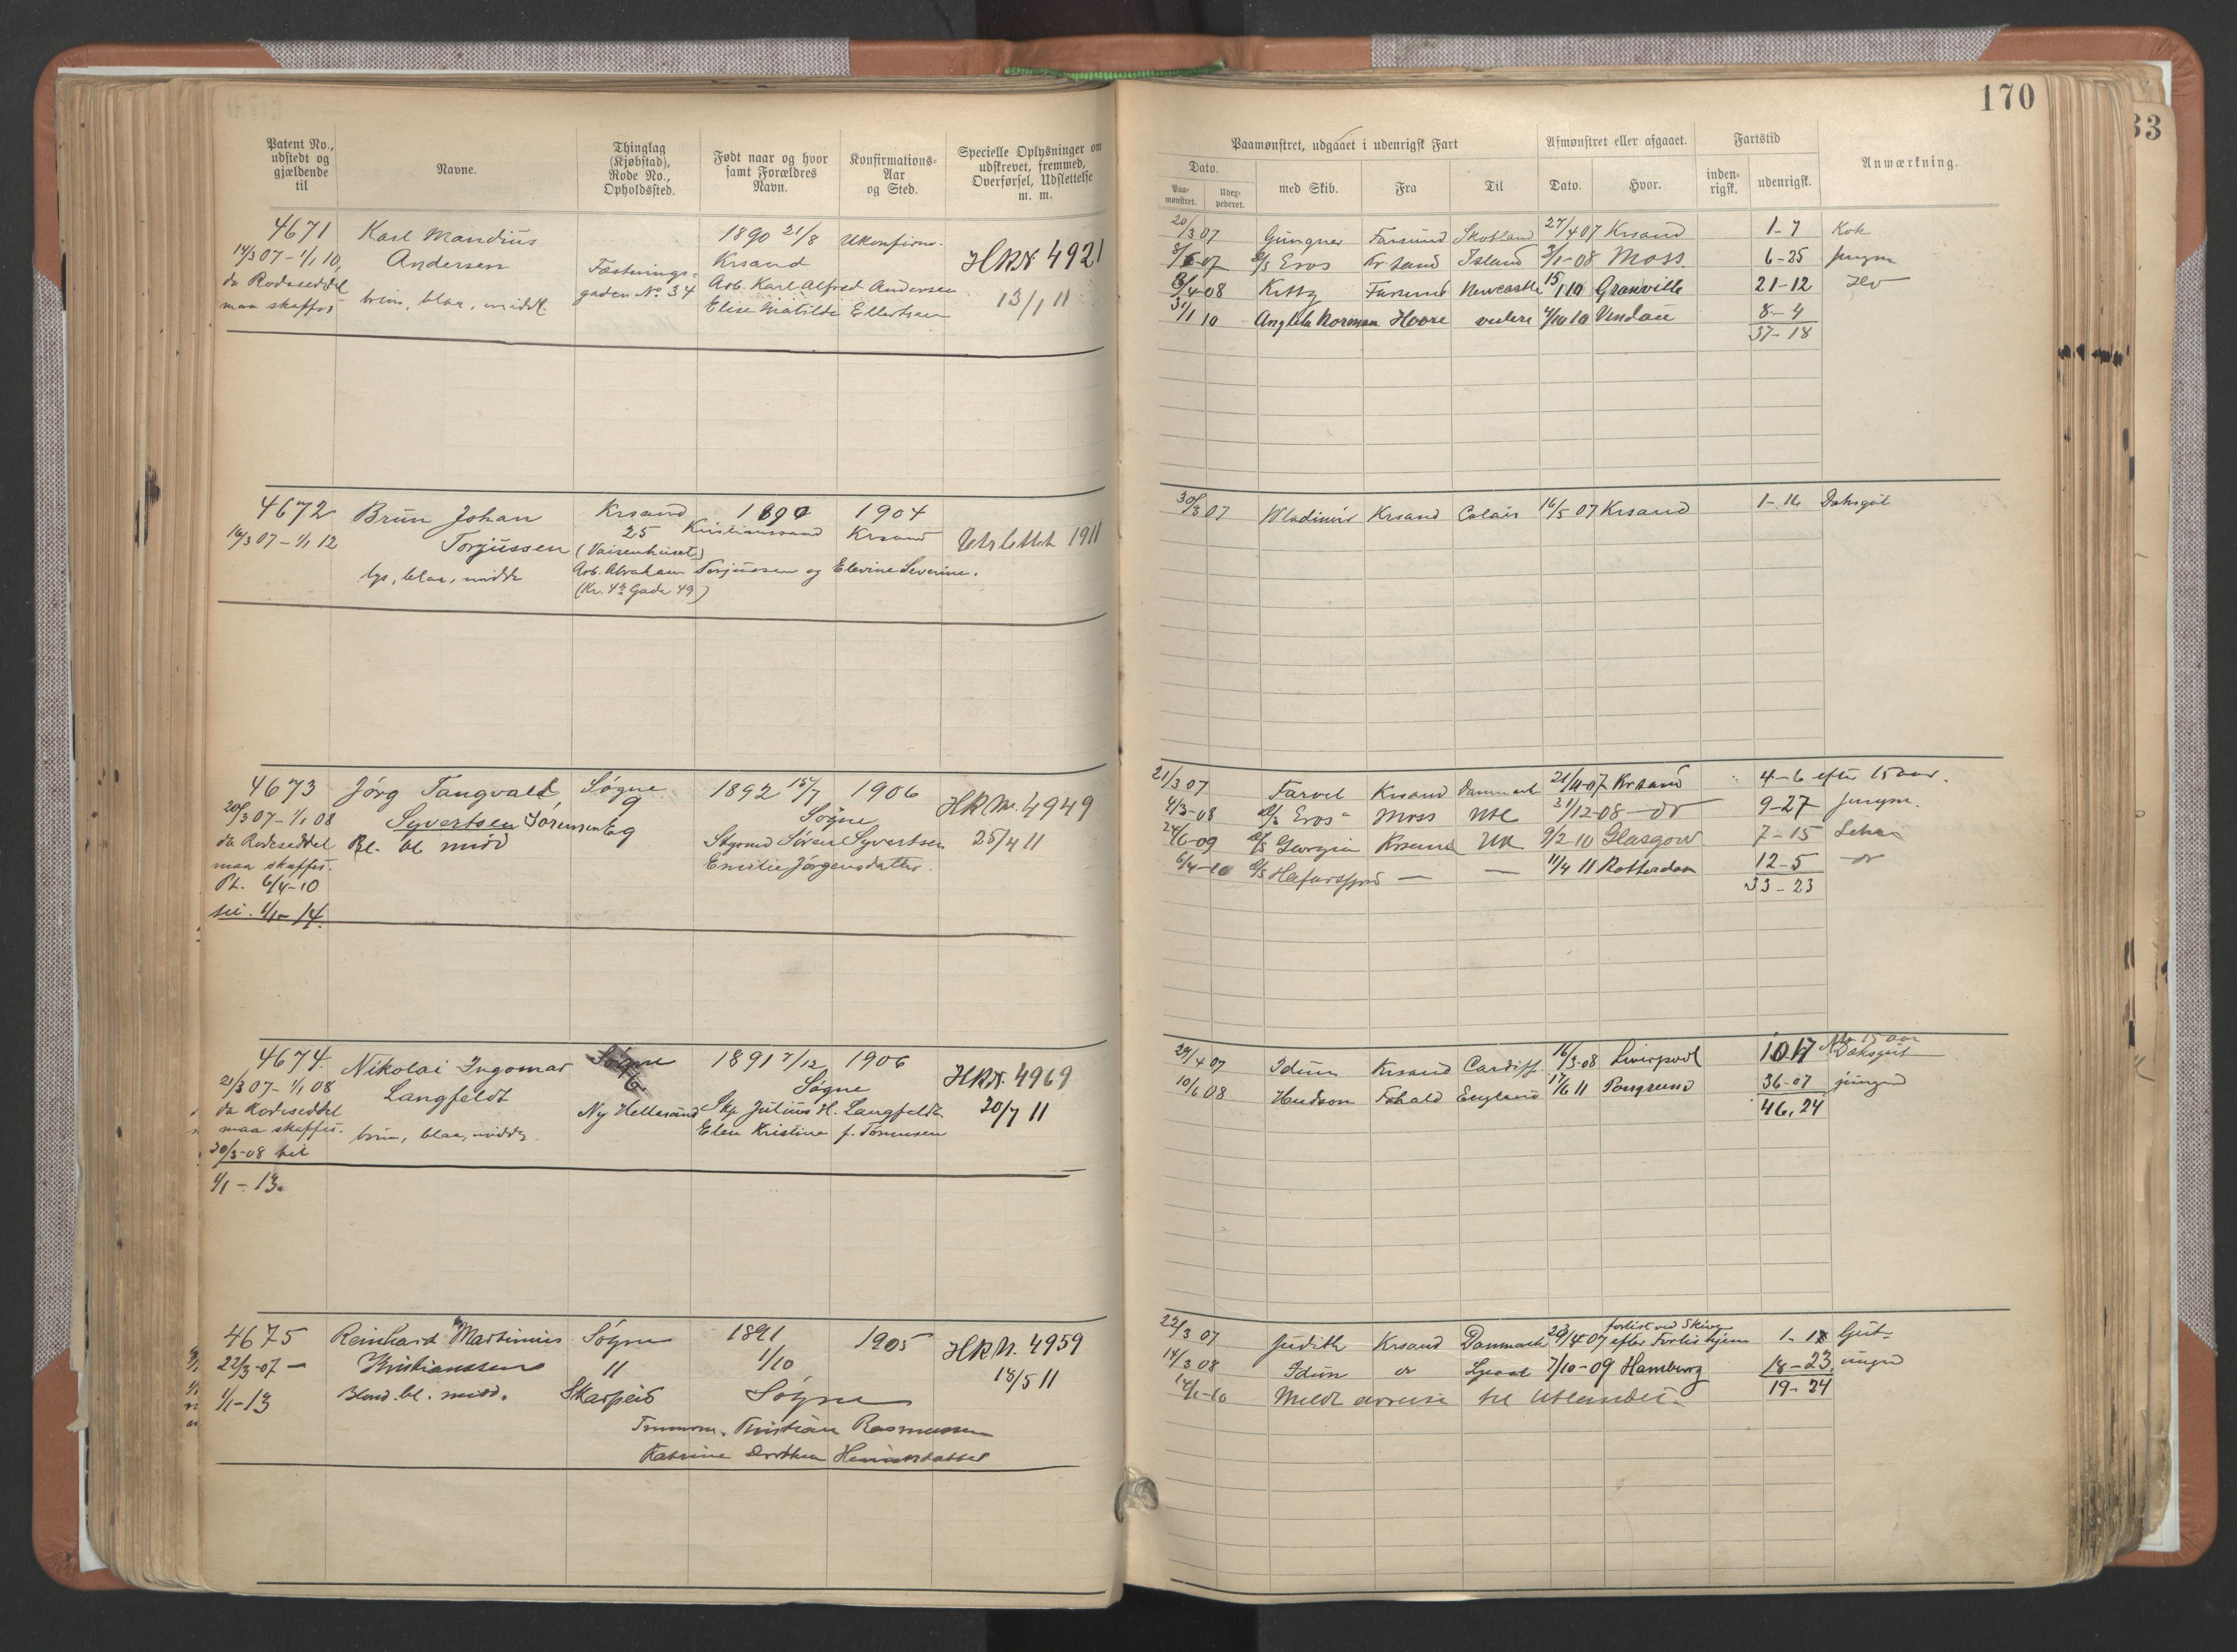 170
33
Patent No., udstedt og gjældende til
Navne.
Thinglag (Kjøbstad), Rode No., Opholdssted.
Født naar og hvor samt Forældres Navn.
Konfirmations-Aar og Sted.
Specielle Oplysninger om udskrevet, fremmed, Overførsel, Udslettelse m. m.
Paamønstret, udgaaet i udenrigsk Fart
Afmønstret eller afgaaet.
Fartstid
Anmærkning.
Dato.
Paa-mønstret.
Udex-pederet.
med Skib.
Fra
Til
Dato.
Hvor.
inden-rigsk.
udenrigsk.
4671 Karl Mandius 1890 21/8 Ukonfirm.
14/3 07 - 1/1 10, Andersen Krsand HRN 4921
da Rodeseddel Fæstnings- Arb. Karl Alfred Andersen
maa skaffes brun, blaa, middl. gaden No 34 Elise Matilde Ellertsen 13/1 11
20/3 07 Gungner Farsund Skotland 27/4 07 Krsand 1-7 Kok
07 Eros Kr.sand Island 3/1-08 Moss. 6-25 Jungm
08 Kitty Farsund Newcastle 15/1 10 Granville 21-12
31/1 10 Norman Havre videre 4/10 10 8-4
37-18
4672 Brun Johan Krsand 1890 1904
16/3 07 - 1/1 12 Torjussen 25 Kristianssand Krsand Utslettet 1911
(Vaisenhuset)
lys, blaa, middl Arb. Abraham Torjussen og Elevine Severine.
(Kr. 4de Gade 49)
30/3 07 Wladimir Krsand Calais 16/5 07 Krsand 1-16 Daksgut
4673 Jørg Tangvald Søgne 1892 15/7 1906
20/3 07 - 1/1 08 Syvertsen Sørensen 9 Søgne HRN. 4949
da Rodeseddel Bl. bl midd Eg Søren Syvertsen 25/4 11
maa skaffes. Emilie Jørgensdatter.
Pt. 6/4-10
til. 1/1-14.
21/3 07 Farvel Krsand Danmark 21/11-07 Krsand 4-6 efter 15 aar.
4/3-08 Eros Moss Utl 31/12-08 - do 9-27 Jungm.
24/6-09 D/S Georgia Krsand Utl 9/2 10 Glasgow. 7-15
6/4-10 D/S Hafursfjord — — 11/4 11 Rotterdam 12-5 do
33-23
4674. Nikolai Ingomar Søgne 1891 7/12 1906
21/3 07 - 1/1 08 Langfeldt Søgne HRN. 4969
da Rodeseddel Ny Hellesund Skp. Julius H. Langfeldt 20/7 11
maa skaffes. brun, blaa, middl. Elen Kristine f. Tønnesen
30/3-08 til
1/1-13.
07 Idun Krsand Cardiff 16/3-08 Liverpool 10 17 15 aar Daksgut
10/6 08 Hudson England 17/6 11 Porsgrund 36-07 jungmd
46,24
4675 Reinhard Martinius Søgne 1891 1905 HRN. 4959
22/3-07 — Kristianssen 11 1/10
1/1-13 Blond. bl. midd. Skarpeid Søgne 18/5 11
Tømmerm. Kristian Rasmussen
Katrine Dorthea Henriksdatter
22/3 07 Judith Krsand Danmark 29/4 07 forlist ved Skiwe efter Forlis hjem 1-1 Gut
14/3 08 Idun do 7/10-09 Hamburg 18-23. ungmd
Meldt avreise til Utlandet. 19-24